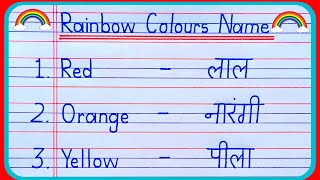 Rainbow Colours Name
1. Red - लाल
2. Orange - नारंगी
3. Yellow - पीला